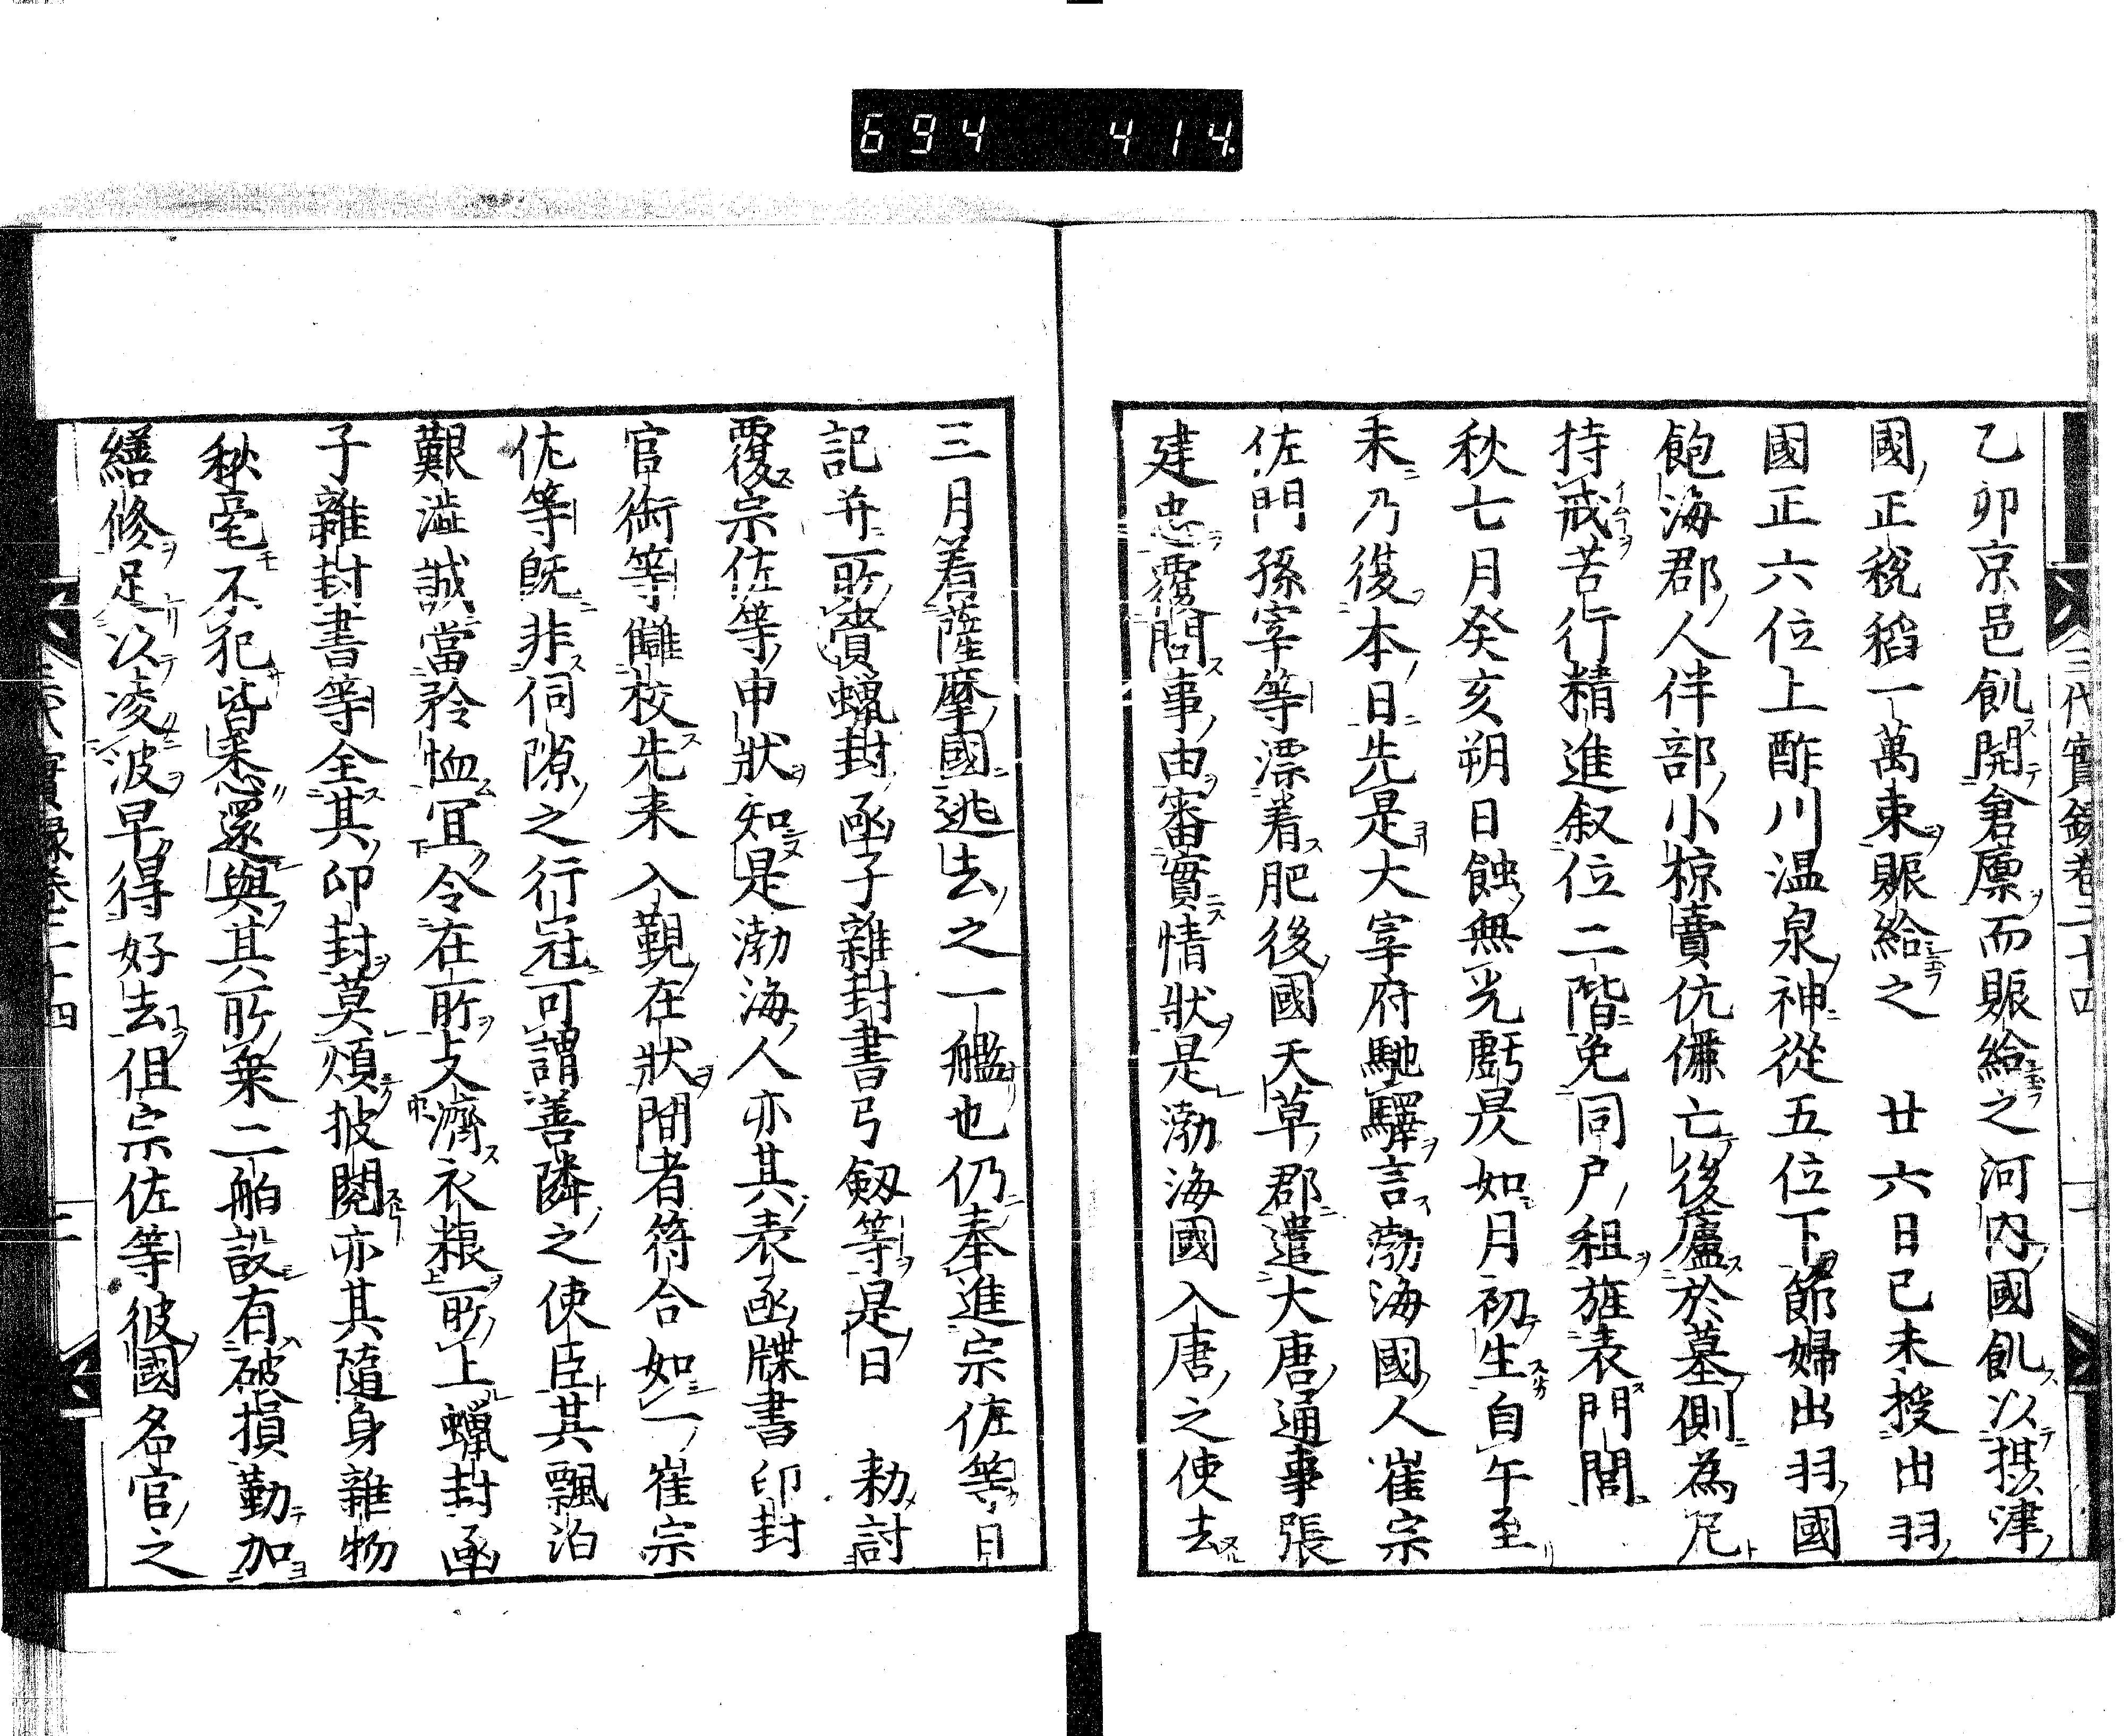 694 414.
三代實錄卷二十四
乙卯京邑飢開倉廩而賑給之河內國飢以攝津
國正稅稻一萬束賑給之　廿六日己未授出羽
國正六位上酢川温泉神從五位下節婦出羽國
飽海郡人伴部小椋賣伉儷亡後廬於墓側為尼
持戒苦行精進叙位二階免同户租旌表門閭
秋七月癸亥朔日蝕無光虧昃如月初生自午至
未乃復本日先是大宰府馳驛言渤海國人崔宗
佐門孫宰等漂着肥後國天草郡遣大唐通事張
建忠覆問事由審實情狀是渤海國入唐之使去
三月着薩摩國逃去之一艦也仍奉進宗佐等日
記并所賚蠟封函子雜封書弓劔等是日　勑討
覆宗佐等申狀知是渤海人亦其表函牒書印封
官銜等讎校先来入覲在狀間者符合如一崔宗
佐等旣非伺隙之行冦可謂善隣之使臣其飄泊
艱澁誠當矜恤宜令在所攴濟衣粮所上蠟封函
子雜封書等全其印封莫煩披閱亦其隨身雜物
秋毫不犯皆悉還與其所乗二舶設有破損勤加
繕修足以凌波早得好去但宗佐等彼國名官之